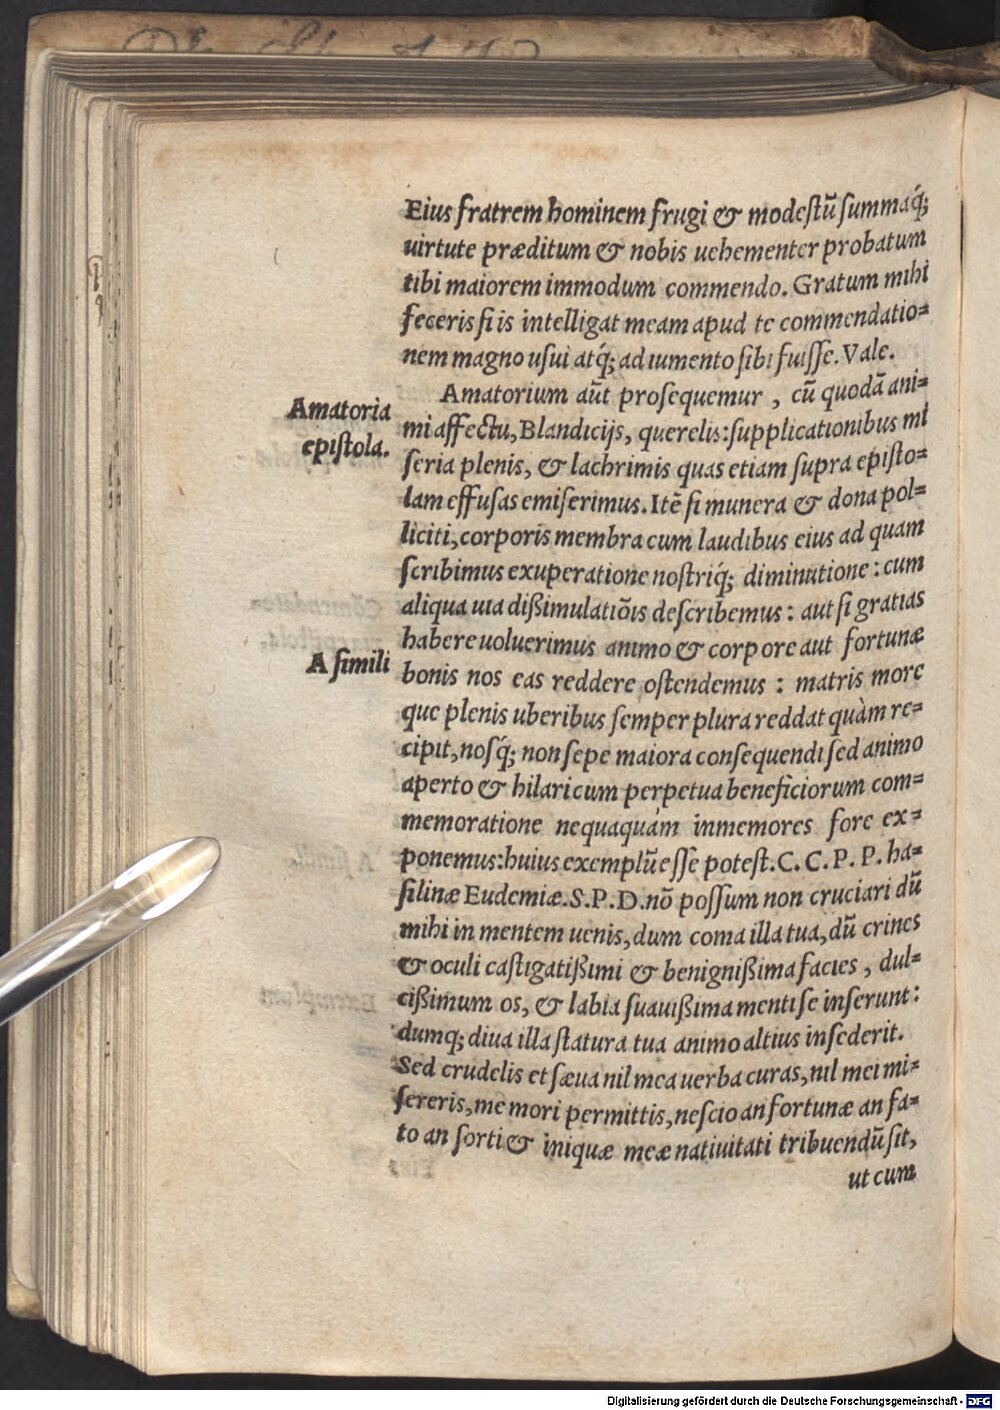 Eius fratrem hominem frugi & modestū summaq́;
uirtute præditum & nobis uehementer probatum
tibi maiorem immodum commendo. Gratum mihi
feceris si is intelligat meam apud te commendatio=
nem magno usui atq́; ad iumento sibi fuisse. Vale.
Amatorium aūt prosequemur, cū quodā ani=
Amatoria
epistola.
mi affectu, Blandicijs, querelis: supplicationibus mi
seria plenis, & lachrimis quas etiam supra episto=
lam effusas emiserimus. Itē si munera & dona pol=
liciti, corporis membra cum laudibus eius ad quam
scribimus exuperatione nostriq́; diminutione: cum
aliqua uia dißimulatiōis describemus: aut si gratias
habere uoluerimus animo & corpore aut fortunæ
A simili
bonis nos eas reddere ostendemus: matris more
que plenis uberibus semper plura reddat quàm re=
cipit, nosq́; non sepe maiora consequendi sed animo
aperto & hilari cum perpetua beneficiorum com=
memoratione nequaquám inmemores fore ex=
ponemus: huius exemplū esse potest. C. C. P. P. ha=
silinæ Eudemiæ. S. P. D. nō possum non cruciari dū
mihi in mentem uenis, dum coma illa tua, dū crines
& oculi castigatißimi & benignißima facies, dul=
cißimum os, & labia suauißima menti se inserunt:
dumq; diua illa statura tua animo altius insederit.
Sed crudelis et sæua nil mea uerba curas, nil mei mi=
sereris, me mori permittis, nescio an fortunæ an fa=
to an sorti & iniquæ meæ natiuitati tribuendū sit,
ut cum
Digitalisierung gefördert durch die Deutsche Forschungsgemeinschaft - DFG